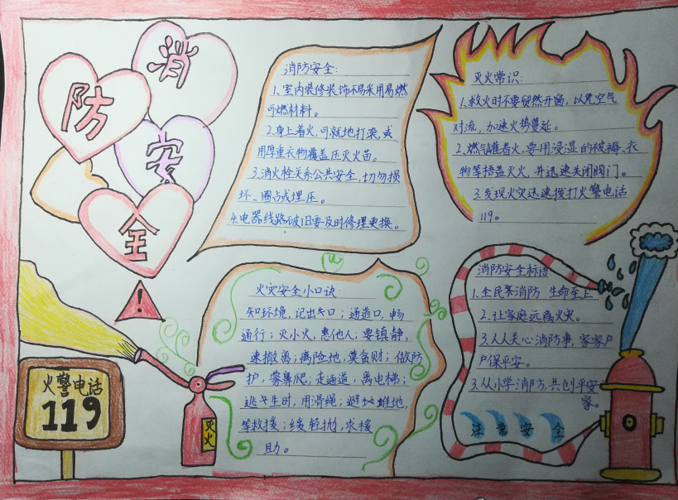 消
防
安
全
!
消防安全:
1.室内装修装饰不易采用易燃
可燃材料。
2.身上着火,可就地打滚,或
用厚重衣物覆盖压灭火苗。
3.消火栓关系公共安全,切勿损
坏、圈占或埋压。
4.电器线路破旧要及时修理更换。
灭火常识:
1.救火时不要贸然开窗,以免空气
对流,加速火势蔓延。
2.燃气罐着火,要用浸湿的被褥、衣
物等捂盖灭火,并迅速关闭阀门。
3.发现火灾迅速拨打火警电话
119。
火灾安全小口诀:
知环境,记出口;通道口,畅
通行;灭小火,惠他人;要镇静,
速撤离;离险地,莫贪财;做防
护,蒙鼻爬;走通道,离电梯;
逃生时,用滑绳;避
等救援;缓轻抛,求援
助。
消防安全标语
1.全民聚消防 生命至上
2.让家庭远离火灾。
3.人人关心消防事,家家户
户保平安。
3.从小学消防,共创平安
家。
安全
火警电话
119
灭火